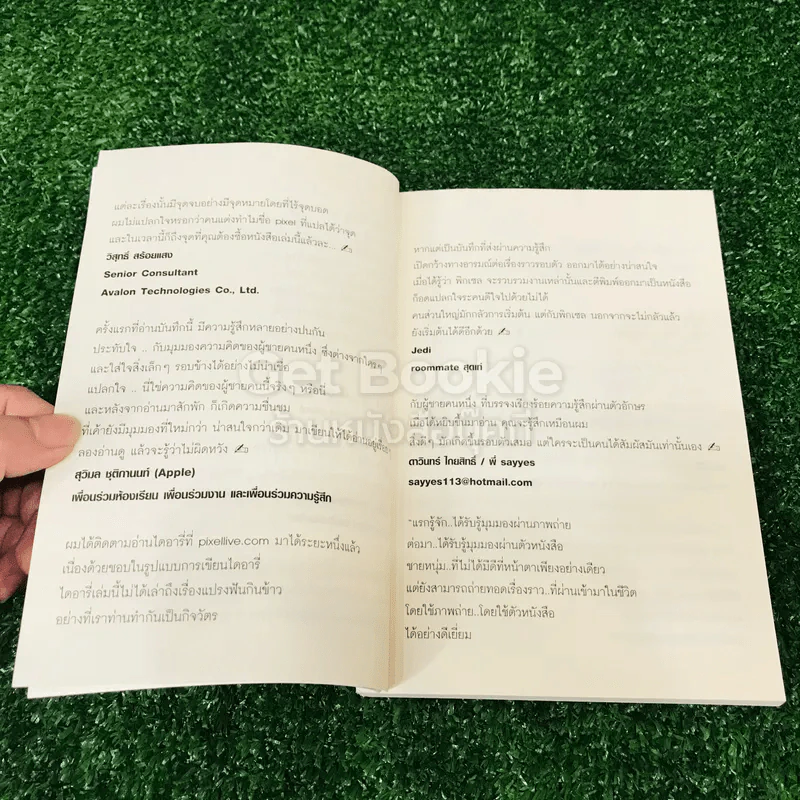 แต่ละเรื่องนั้นมีจุดจบอย่างมีจุดหมายโดยที่ไร้จุดบอด
ผมไม่แปลกใจหรอกว่าคนแต่งทำไมชื่อ pixel ที่แปลได้ว่าจุด
และในเวลานี้ก็ถึงจุดที่คุณต้องซื้อหนังสือเล่มนี้แล้วละ...
วิสุทธิ์ สร้อยแสง
Senior Consultant
Avalon Technologies Co., Ltd.
ครั้งแรกที่อ่านบันทึกนี้ มีความรู้สึกหลายอย่างปนกัน
ประทับใจ .. กับมุมมองความคิดของผู้ชายคนหนึ่ง ซึ่งต่างจากใครๆ
และใส่ใจสิ่งเล็กๆ รอบข้างได้อย่างไม่น่าเชื่อ
แปลกใจ .. นี่ใช่ความคิดของผู้ชายคนนี้จริงๆ หรือนี่
และหลังจากอ่านมาสักพัก ก็เกิดความชื่นชม
ที่เค้ายังมีมุมมองที่ใหม่กว่า น่าสนใจกว่าเดิม มาเขียนให้ได้อ่าน
ลองอ่านดู แล้วจะรู้ว่าไม่ผิดหวัง
สุวิมล ชุติกานนท์ (Apple)
เพื่อนร่วมห้องเรียน เพื่อนร่วมงาน และเพื่อนร่วมความรู้สึก
ผมได้ติดตามอ่านไดอารี่ที่ pixellive.com มาได้ระยะหนึ่งแล้ว
เนื่องด้วยชอบในรูปแบบการเขียนไดอารี่
ไดอารี่เล่มนี้ไม่ได้เล่าถึงเรื่องแปรงฟันกินข้าว
อย่างที่เราท่านทำกันเป็นกิจวัตร
หากแต่เป็นบันทึกที่ส่งผ่านความรู้สึก
เปิดกว้างทางอารมณ์ต่อเรื่องราวรอบตัว ออกมาได้อย่างน่าสนใจ
เมื่อได้รู้ว่า พิกเซล จะรวบรวมงานเหล่านั้นและตีพิมพ์ออกมาเป็นหนังสือ
ก็อดแปลกใจระคนดีใจไปด้วยไม่ได้
คนส่วนใหญ่มักกลัวการเริ่มต้น แต่กับพิกเซล นอกจากจะไม่กลัวแล้ว
ยังเริ่มต้นได้ดีอีกด้วย
Jedi
roommate สุดเก๋
กับผู้ชายคนหนึ่ง ที่บรรจงเรียงร้อยความรู้สึกผ่านตัวอักษร
เมื่อได้หยิบขึ้นมาอ่าน คุณจะรู้สึกเหมือนผม
สิ่งดีๆ มักเกิดขึ้นรอบตัวเสมอ แต่ใครจะเป็นคนได้สัมผัสมันเท่านั้นเอง
ดาวินทร์ ไทยสิทธิ์ / พี่ sayyes
sayyes113@hotmail.com
"แรกรู้จัก..ได้รับรู้มุมมองผ่านภาพถ่าย
ต่อมา..ได้รับรู้มุมมองผ่านตัวหนังสือ
ชายหนุ่ม..ที่ไม่ได้มีดีที่หน้าตาเพียงอย่างเดียว
แต่ยังสามารถถ่ายทอดเรื่องราว..ที่ผ่านเข้ามาในชีวิต
โดยใช้ภาพถ่าย..โดยใช้ตัวหนังสือ
ได้อย่างดีเยี่ยม
Get Bookie